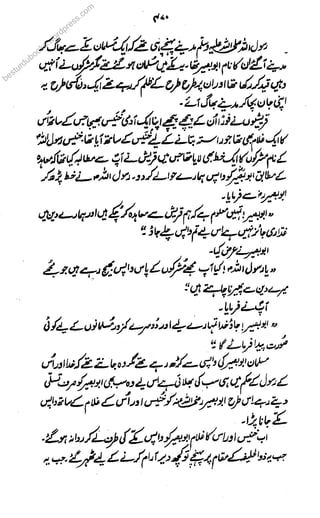 ۴۷۰
رسول اللہ صلی اللہ علیہ وسلم مدینے پہنچے ہی تھے کہ ایک مسلمان مکے سے بھاگ کر
مدینے آ گئے ان کا نام ابوبصیرؓ تھا۔ یہ مکے میں مسلمان ہو گئے تھے مگر مشرکوں نے انہیں
وہیں قید کر رکھا تھا اور ان پر طرح طرح کے ظلم کر رہے تھے ایک دن کسی طرح یہ
اپنی جان بچا کر مدینے بھاگ آئے۔
قریشیوں نے فوراً ان کے پیچھے پیچھے اپنا ایک آدمی خنیس بھیجا جس کے ساتھ اُس
کا ایک غلام بھی تھا جو راستہ بتانے کے لئے خنیس کے ساتھ آیا تھا خنیس رسول اللہؐ
کے نام مشرکوں کا ایک خط بھی لایا تھا جس میں قریش نے آپؐ سے مطالبہ کیا تھا کہ معاہدہ
کے مطابق ابوبصیرؓ کو واپس ہمارے حوالے کر دو۔ رسول اللہؐ نے خط پڑھ کر
ابوبصیرؓ سے فرمایا۔
"ابوبصیر! تمہیں معلوم ہے کہ ہم قریش سے معاہدہ کر چکے ہیں اور ہمارے دین میں
غداری جائز نہیں ہے اس لیے تم واپس چلے جاؤ"
ابوبصیرؓ نے عرض کیا۔
"یا رسول اللہؐ! کیا آپ مجھے مشرکوں کے پاس واپس بھیج رہے ہیں جو مجھے
میرے دین سے پھیرنا چاہتے ہیں"
آپؐ نے فرمایا۔
"ابوبصیر! جاؤ خدا تمہارے لیے اور دوسرے کمزور مسلمانوں کے لیے کوئی
صورت پیدا فرمائے گا"
مسلمان ابوبصیرؓ کی واپسی سے کڑھ رہے تھے مگر وہ جانتے تھے کہ خدا اور اُس
کے رسول کے حکم میں ہی سب کی بھلائی ہے اس لیے وہ سب بھی ابوبصیرؓ کو صرف تسلی
دیتے رہے اس طرح ابوبصیر رضی اللہ عنہ کو خنیس اور اُس کے غلام کے ساتھ واپس
مکے جانا پڑا۔
اب خنیس اور اس کا غلام ابوبصیرؓ کو واپس مکے کی طرف لے کر روانہ ہو گئے۔
جب یہ ذوالحلیفہ کے مقام پر پہنچے تو کچھ دیر آرام کرنے کے لیے ٹھہر گئے۔ جب یہ